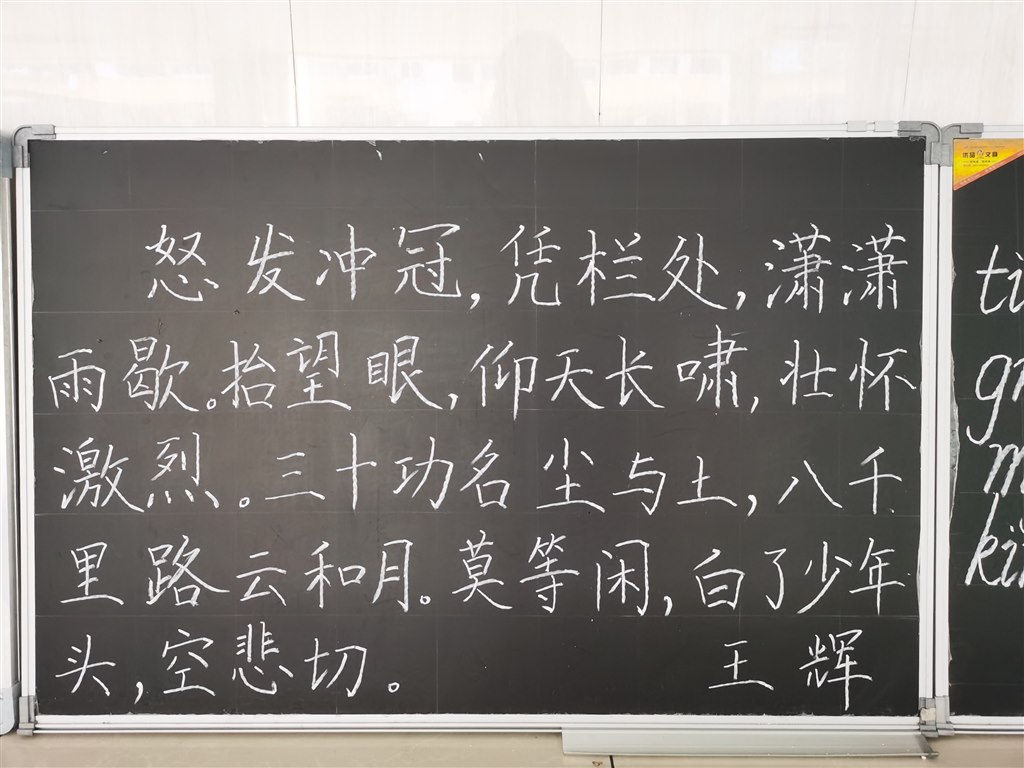 怒发冲冠,凭栏处,潇潇
雨歇。抬望眼,仰天长啸,壮怀
激烈。三十功名尘与土,八千
里路云和月。莫等闲,白了少年
头,空悲切。 王辉
ti
gr
m
ki